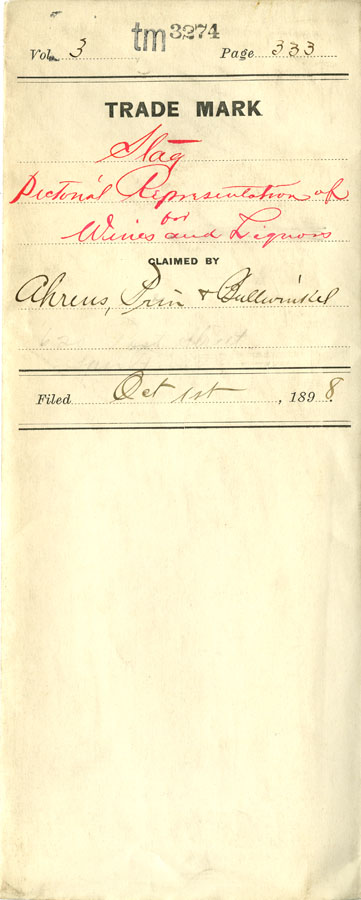 tm 3274
Vol. 3 Page 333
TRADE MARK
Stag
Pictorial Representation of
for
Wines and Liquors
CLAIMED BY
Ahrens, & Bullwinkel
Filed Oct 1st, 1898.